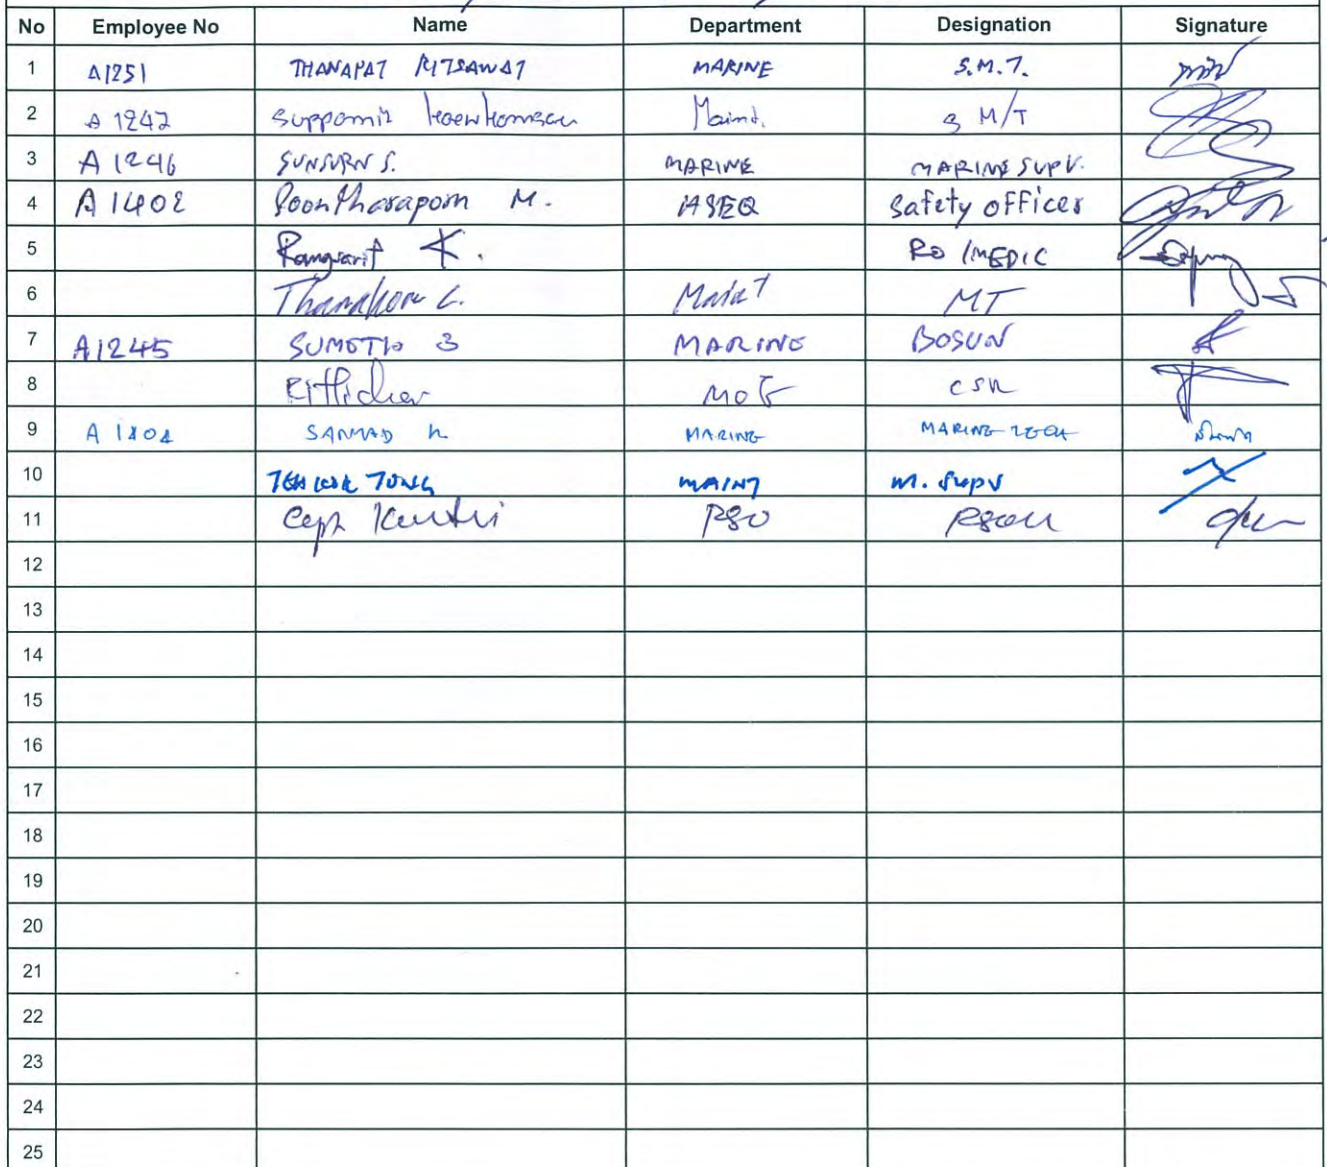 No Employee No Name Department Designation Signature
1 A1251 THANAPAT RITSAWAT MARINE S.M.T.
2 A 1247 Suppamit Maint. S M/T
3 A 1246 SUNSURN S. MARINE MARINE SUPV.
4 A 1402 Poontharaporn M. HSEQ Safety officer
5 Rangsarit K. RO /MEDIC
6 Thanakorn C. Maint MT
7 A1245 MARINE BOSUN
8 Kittichai
9 A 1404 SANMAD K MARINE MARINE TECH
10 TEH KOK TONG MAINT M. SUPV
11 Capt PSO
12
13
14
15
16
17
18
19
20
21
22
23
24
25